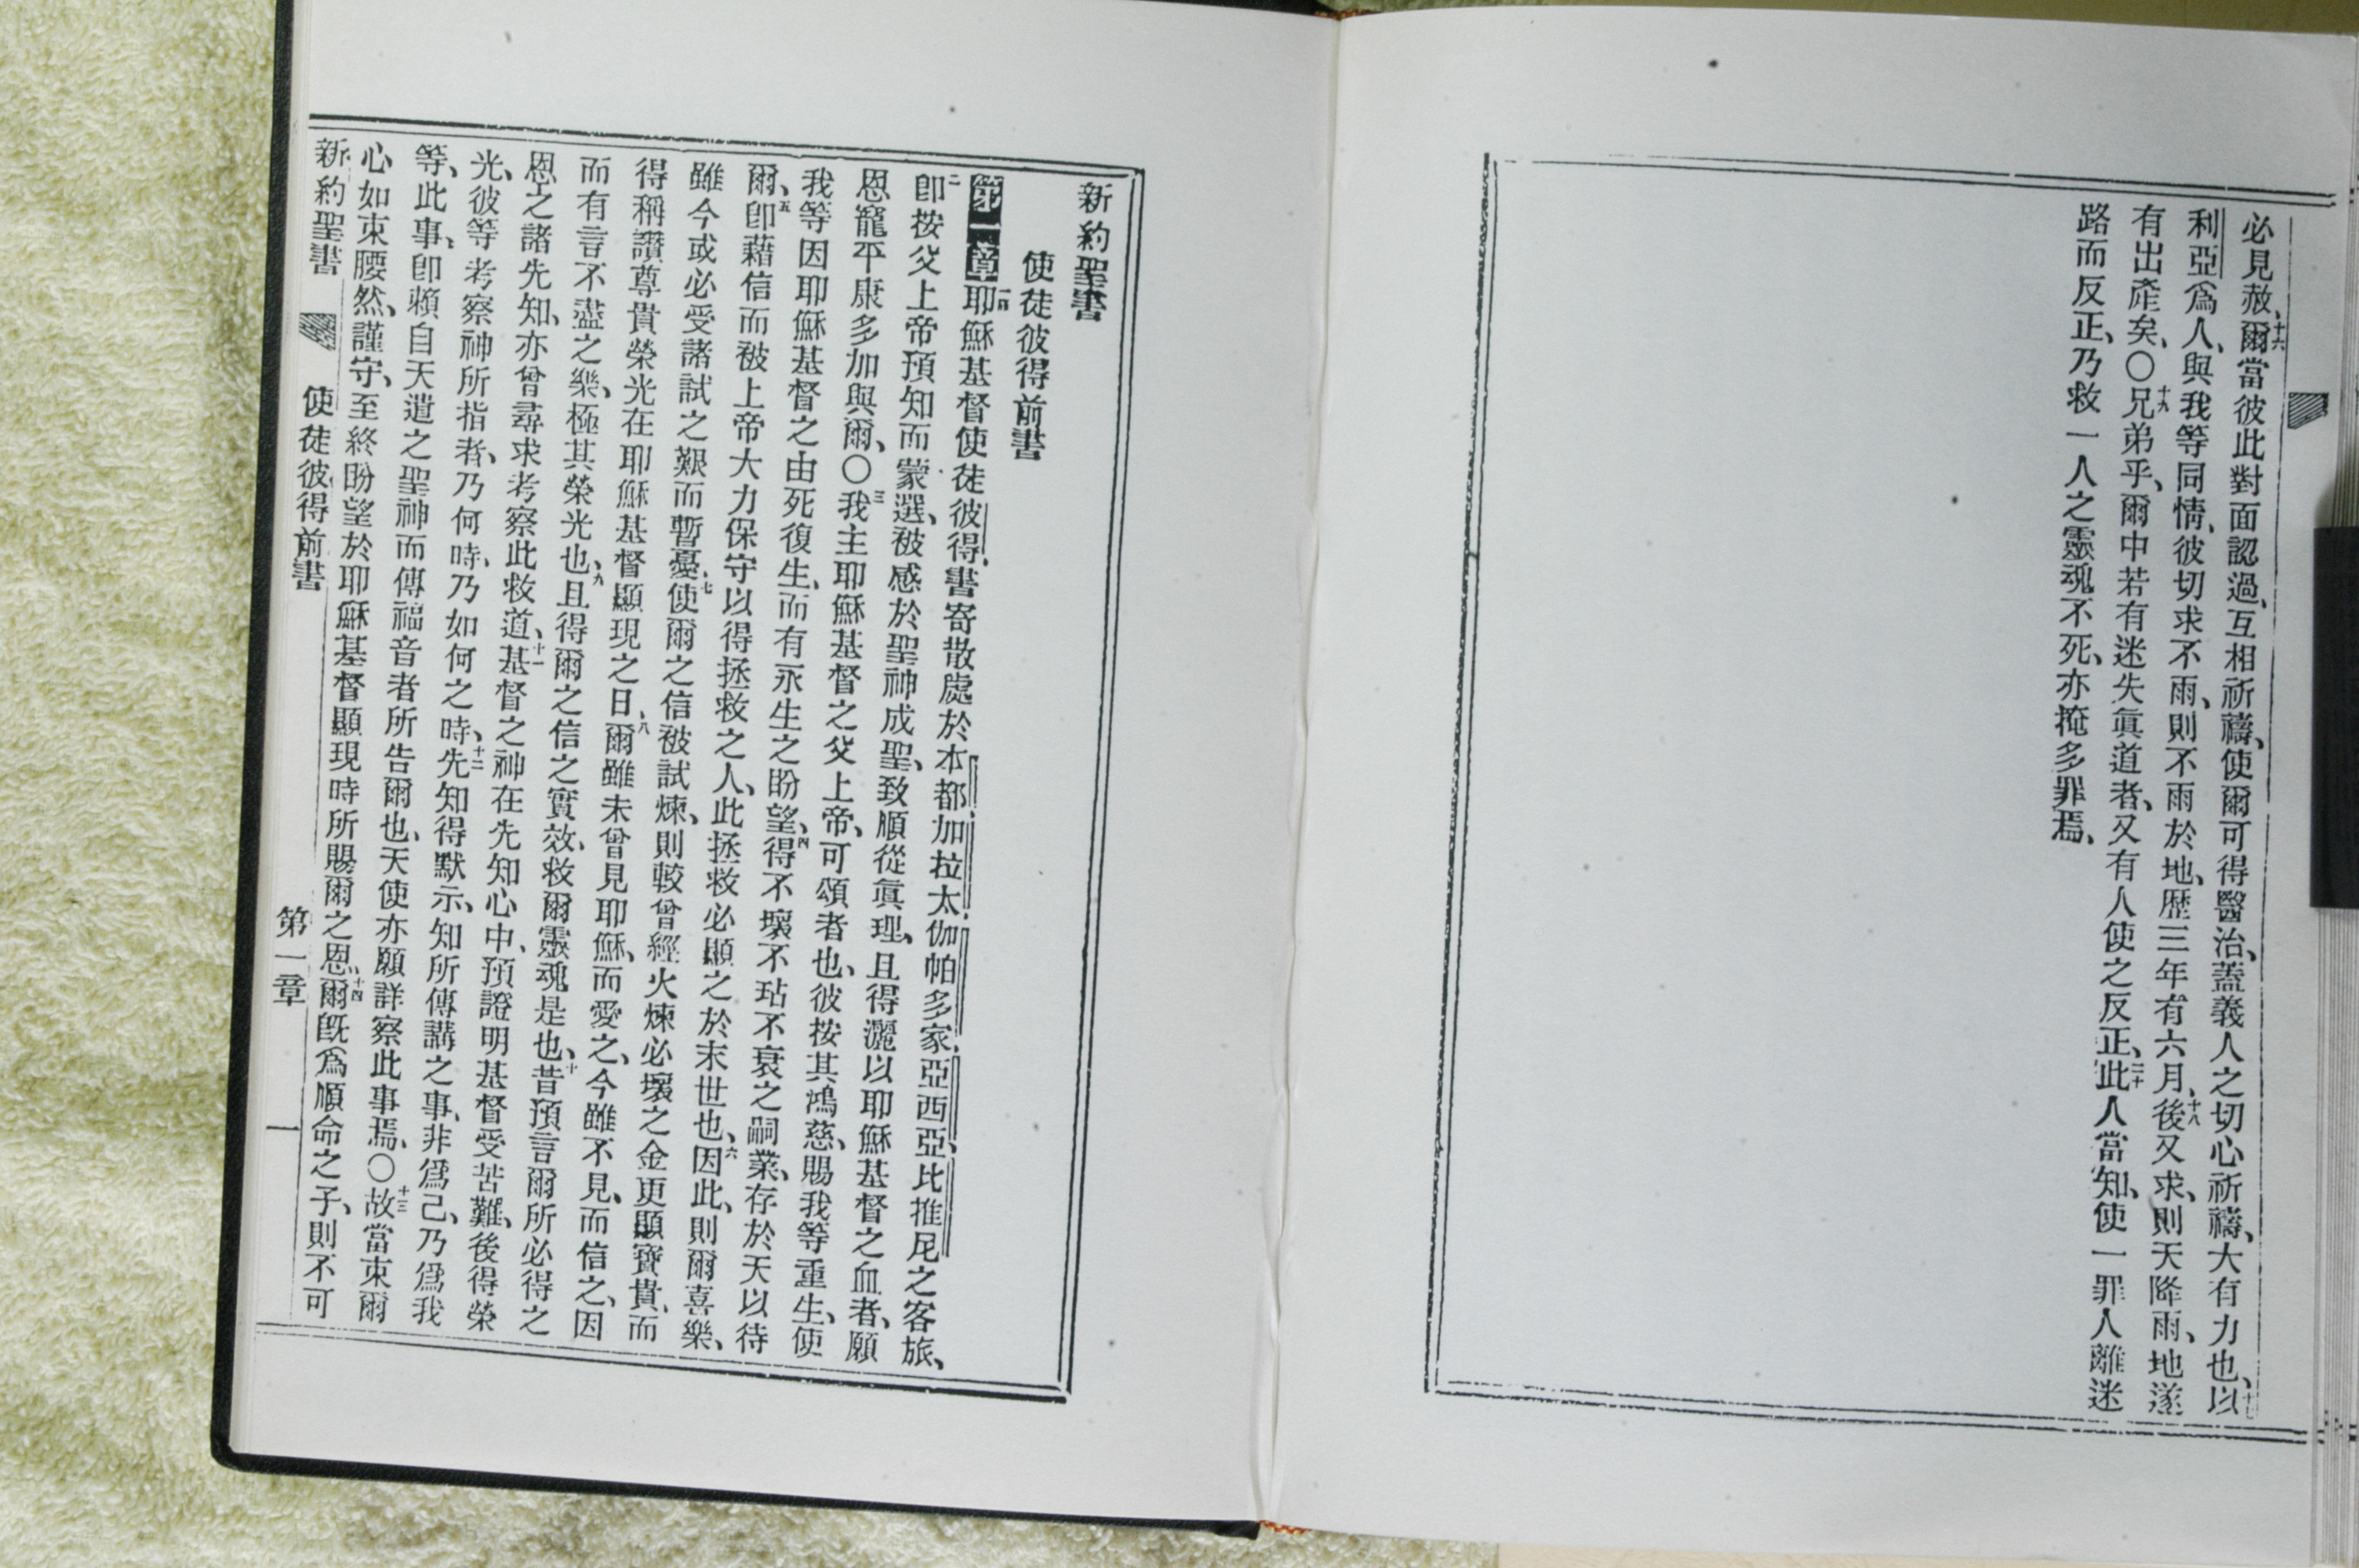 必見赦、十六爾當彼此對面認過、互相祈禱、使爾可得醫治、蓋義人之切心祈禱、大有力也、十七以
利亞爲人、與我等同情、彼切求不雨、則不雨於地、歷三年有六月、十八後又求、則天降雨、地遂
有出產矣、○十九兄弟乎、爾中若有迷失眞道者、又有人使之反正、二十此人當知、使一罪人離迷
路而反正、乃救一人之靈魂不死、亦掩多罪焉、
新約聖書
使徒彼得前書
第一章 一耶穌基督使徒彼得、書寄散處於本都、加拉太、伽帕多家、亞西亞、比推尼之客旅、
二卽按父上帝預知而蒙選、被感於聖神成聖、致順從眞理、且得灑以耶穌基督之血者、願
恩寵平康多加與爾、○三我主耶穌基督之父上帝、可頌者也、彼按其鴻慈、賜我等重生、使
我等因耶穌基督之由死復生、而有永生之盼望、四得不壞不玷不衰之嗣業、存於天以待
爾、五卽藉信而被上帝大力保守以得拯救之人、此拯救必顯之於末世也、六因此、則爾喜樂、
雖今或必受諸試之艱而暫憂、七使爾之信被試煉、則較曾經火煉必壞之金更顯寶貴、而
得稱讚尊貴榮光在耶穌基督顯現之日、八爾雖未曾見耶穌、而愛之、今雖不見、而信之、因
而有言不盡之樂、極其榮光也、九且得爾之信之實效、救爾靈魂是也、十昔預言爾所必得之
恩之諸先知、亦曾尋求考察此救道、十一基督之神在先知心中、預證明基督受苦難、後得榮
光、彼等考察神所指者、乃何時、乃如何之時、十二先知得默示、知所傳講之事、非爲己、乃爲我
等、此事、卽賴自天遣之聖神而傳福音者所告爾也、天使亦願詳察此事焉、○十三故當束爾
心如束腰然、謹守、至終盼望於耶穌基督顯現時所賜爾之恩、十四爾旣爲順命之子、則不可
新約聖書 使徒彼得前書 第一章 一